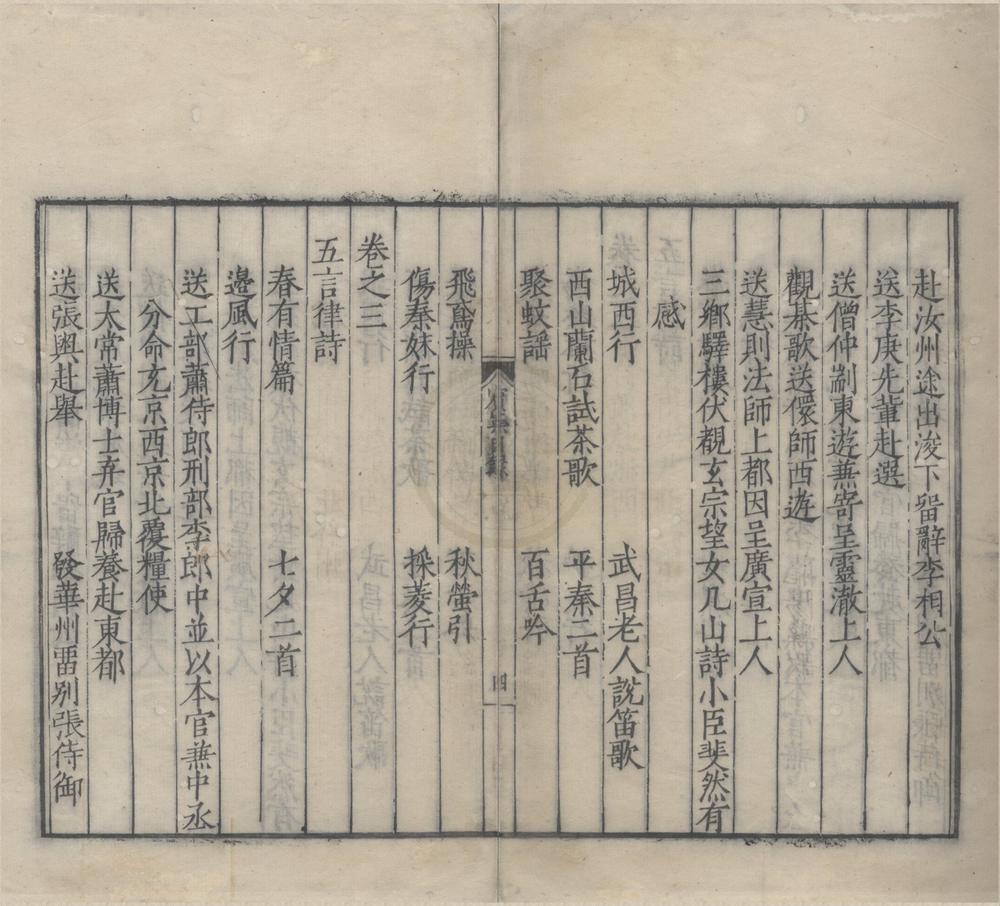 赴汝州途出浚下畱辭李相公
送李庚先輩赴選
送僧仲剬東遊蕪寄呈靈澈上人
觀棊歌送儇師西遊
送慧則法師上都因呈廣宣上人
三鄉驛樓伏覩玄宗望女几山詩小臣斐然有
感
城西行 武昌老人說笛歌
西山蘭石試茶歌 平秦二首
聚蚊謡 百舌吟
目錄 四
飛鳶操 秋螢引
傷秦姝行 採菱行
卷之三
五言律詩
春有情篇 七夕二首
邊風行
送工部蕭侍郎刑部李郎中並以本官蕪中丞
分命充京西京北覆糧使
送太常蕭博士弃官歸養赴東都
送張輿赴舉 發華州畱别張侍御